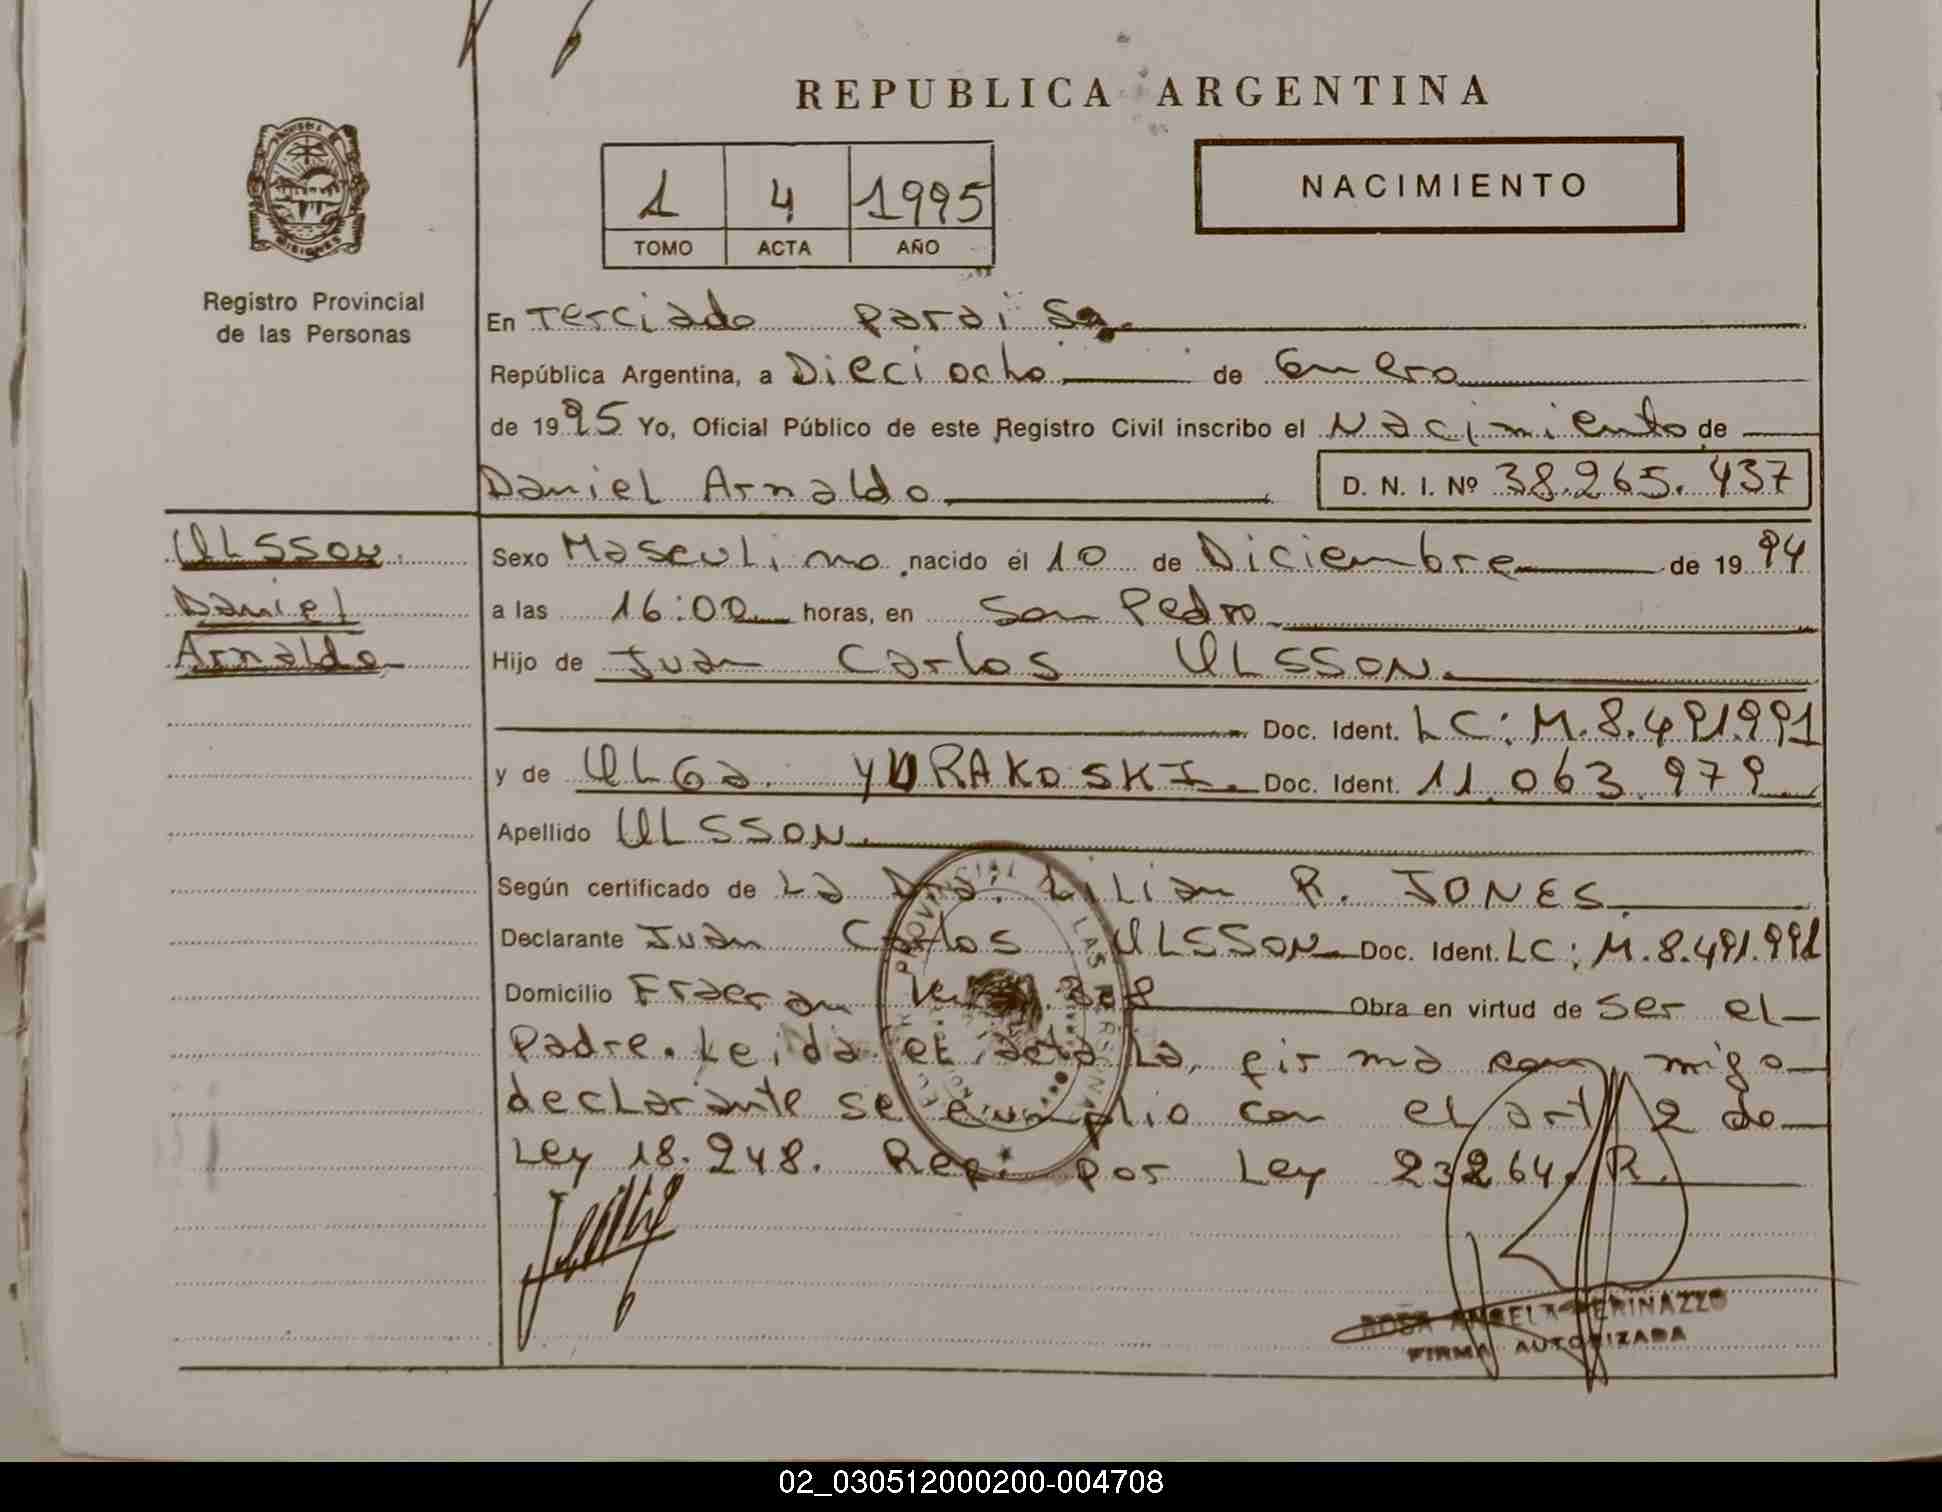 REPUBLICA ARGENTINA
1 4 1995
TOMO ACTA AÑO
NACIMIENTO
MISIONES
Registro Provincial
de las Personas
En Terciado Paraiso.
República Argentina, a Dieciocho de Enero
de 1995 Yo, Oficial Público de este Registro Civil inscribo el Nacimiento de
Daniel Arnaldo D. N. I. Nº 38.265.437
ULSSON.
Daniel
Arnaldo
Sexo Masculino nacido el 10 de Diciembre de 1994
a las 16:00 horas, en San Pedro
Hijo de Juan Carlos ULSSON.
Doc. Ident. LC: M.8.491.991
y de OLGa YURAKOSKI. Doc. Ident. 11.063.979
Apellido ULSSON.
Según certificado de La Dra: Lilian R. JONES.
Declarante Juan Carlos ULSSON Doc. Ident. LC: M.8.491.991
Domicilio Fracran Obra en virtud de Ser el
Padre. Leida el acta La, firma con migo
declarante se cumplio con el art 2 de
Ley 18.248. Rep. por Ley 23264. R.
ROSA ANGELA PERINAZZO
FIRMA AUTORIZADA
02_030512000200-004708